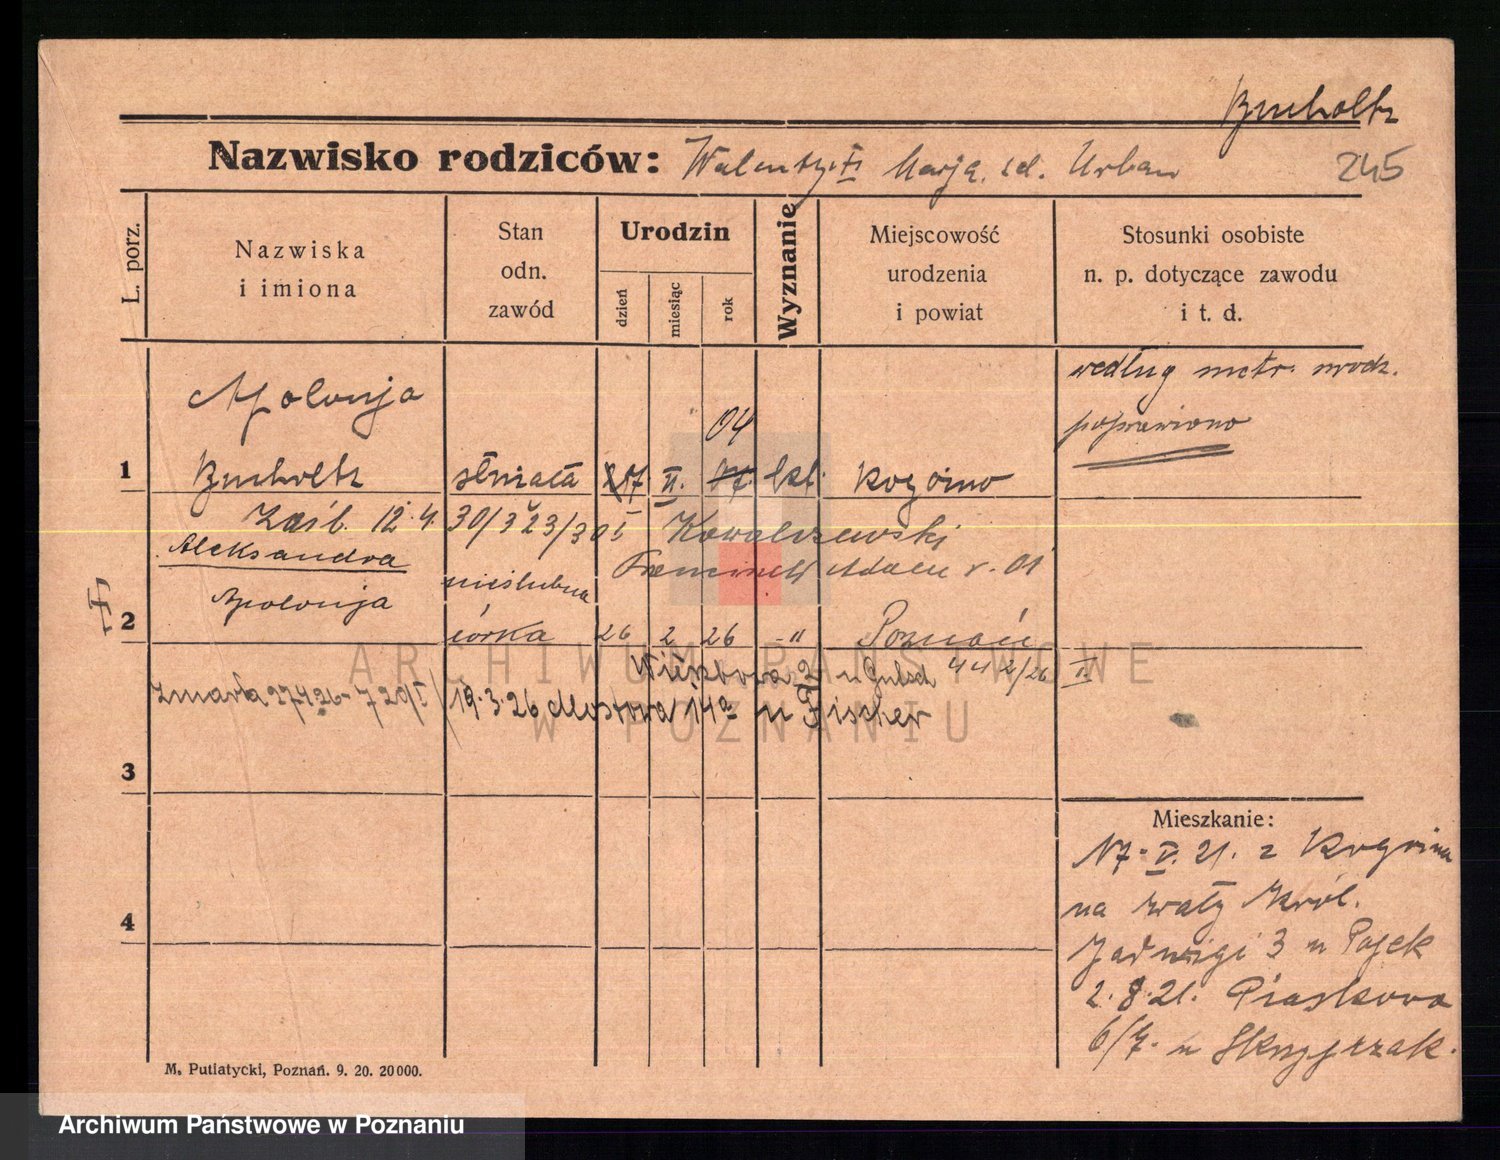 Bucholtz
Nazwisko rodziców: Walenty i Marja. zd. Urban
245
L. porz.
Nazwiska
i imiona
Stan
odn.
zawód
Urodzin
dzień
miesiąc
rok
Wyznanie
Miejscowość
urodzenia
i powiat
Stosunki osobiste
n. p. dotyczące zawodu
i t. d.
według metr. urodz.
poprawiono
Apolonja
04
1 Bucholtz służąca 7. II. kat. Rogoźno
Zaśl. 12.4. 30/323/30 I Kowalczewski
Aleksandra
Franciszek Adam r. 01
nieślubna
Apolonja
2 córka 26 2 26 -"- Poznań
Wierzbowa u 442/26 II.
zmarła 27 4 26 - 720/I 19.3.26 Mostowa 14a u Fischer
3
Mieszkanie:
17. V. 21. z Rogoźna
na Wały Król.
Jadwigi 3 u
2.8.21. Piaskowa
6/7. u Skrzypczak.
4
M. Putiatycki, Poznań. 9. 20. 20000.
ARCHIWUM PAŃSTWOWE
W POZNANIU
Archiwum Państwowe w Poznaniu